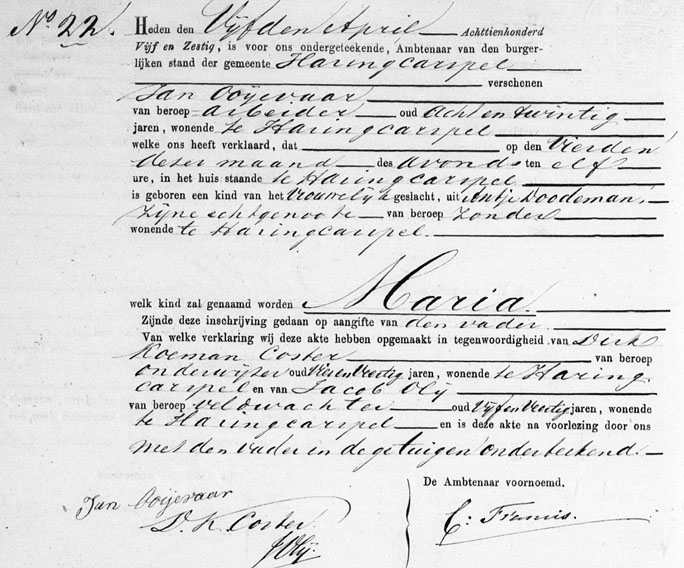 No 22. Heden den Vijfden April Achttienhonderd
Vijf en Zestig, is voor ons ondergeteekende, Ambtenaar van den burger-
lijken stand der gemeente Haringcarspel
verschenen
Jan Ooijevaar
van beroep arbeider oud acht en twintig
jaren, wonende te Haringcarspel
welke ons heeft verklaard, dat op den Vierden
dezer maand des avonds ten elf
ure, in het huis staande te Haringcarspel
is geboren een kind van het Vrouwelijk geslacht, uit Antje Doodeman,
zijne echtgenoote van beroep zonder
wonende te Haringcarspel.
welk kind zal genaamd worden Maria.
Zijnde deze inschrijving gedaan op aangifte van den vader.
Van welke verklaring wij deze akte hebben opgemaakt in tegenwoordigheid van Dirk
Koeman Coster van beroep
onderwijzer oud Vier en Veertig jaren, wonende te Haring
carspel en van Jacob Olij
van beroep veldwachter oud Vijf en Veertig jaren, wonende
te Haringcarspel en is deze akte na voorlezing door ons
met den vader en de getuigen onderteekend.
De Ambtenaar voornoemd.
Jan Ooijevaar
D. K. Coster.
J Olij.
C: Francis.